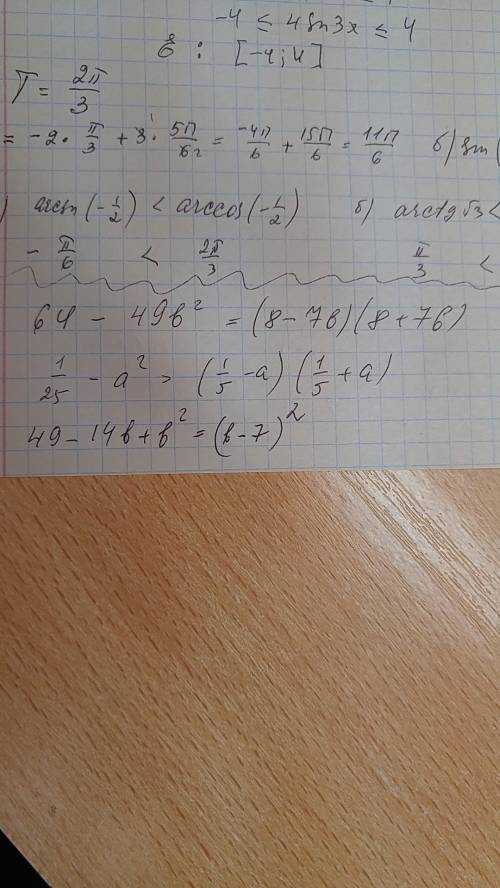 -4 ≤ 4 sin 3x ≤ 4
: [-4; 4]
T = 2π/3
= -2 · π/3 + 3 · 5π/6₂ = -4π/6 + 15π/6 = 11π/6 б) sin (
) arcsin (-1/2) < arccos (-1/2) б) arctg √3 <
- π/6 < 2π/3 π/3 <
64 - 49b² = (8 - 7b)(8 + 7b)
1/25 - a² = (1/5 - a)(1/5 + a)
49 - 14b + b² = (b - 7)²